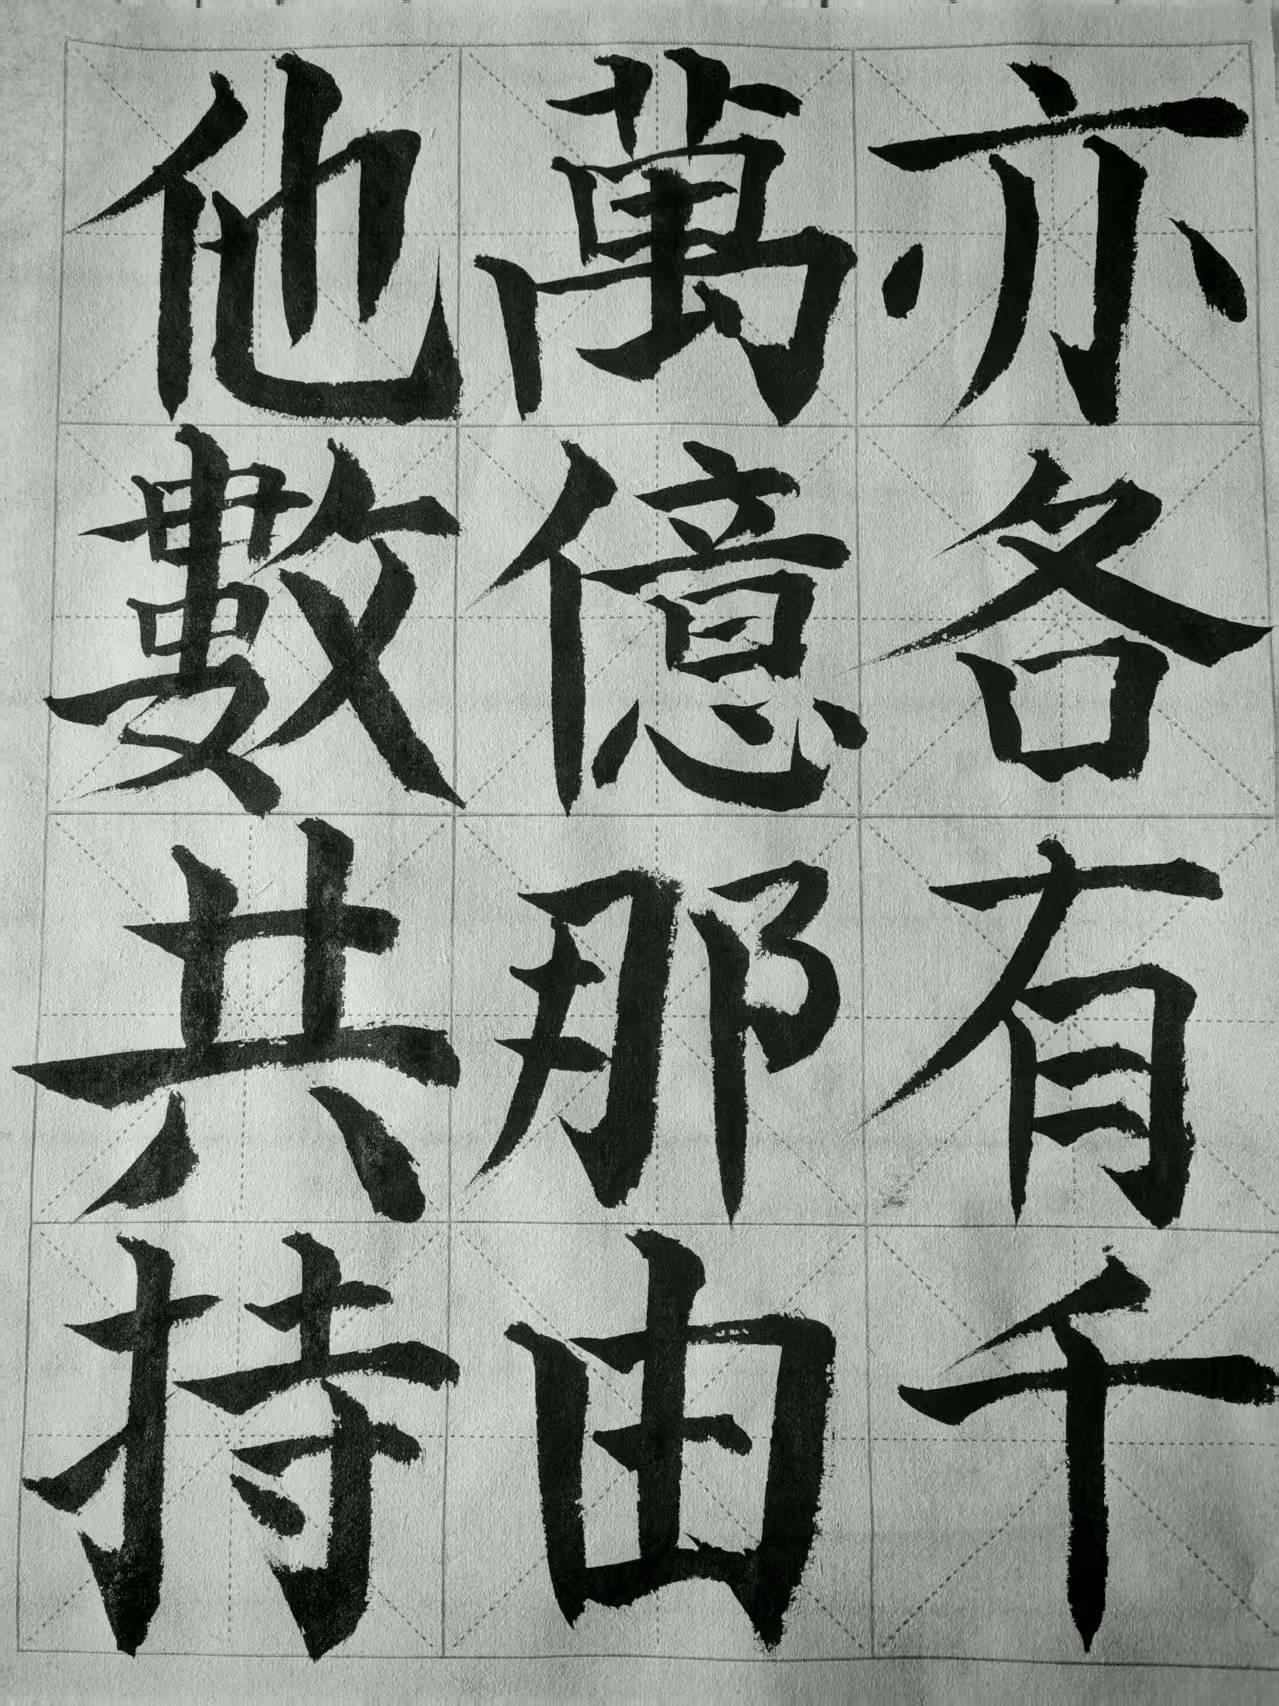 亦各有千
萬億那由
他數共持